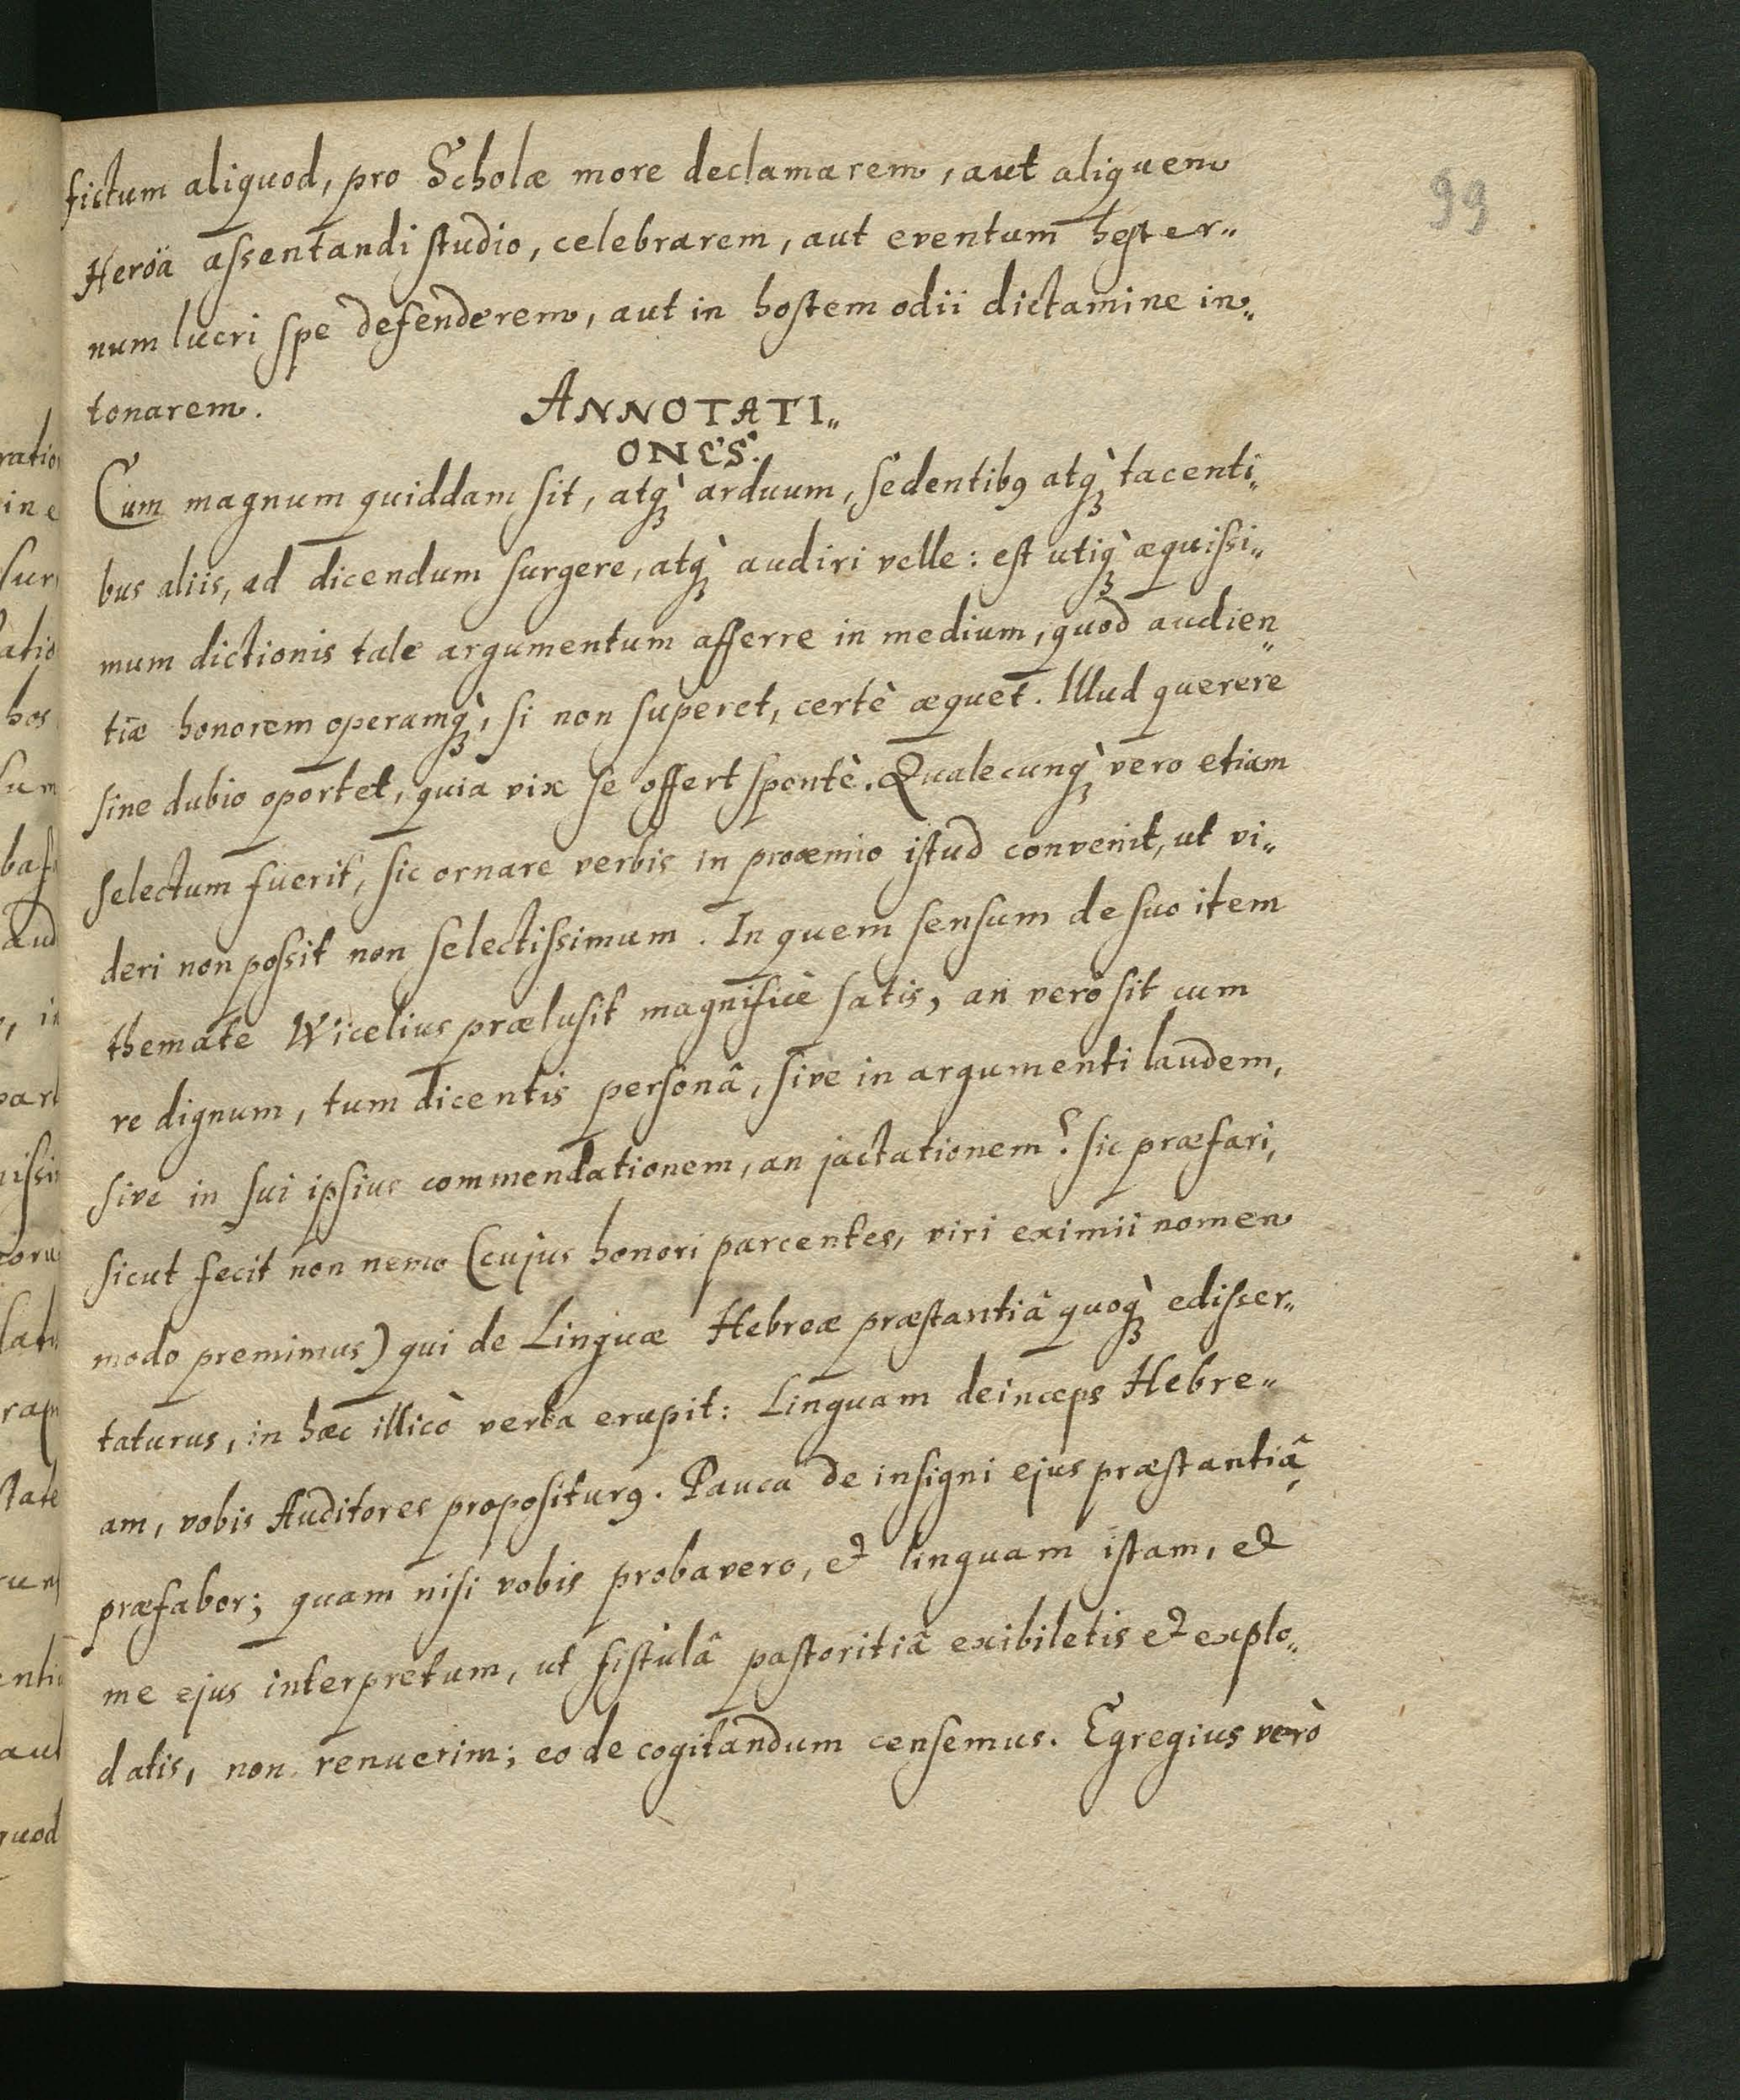 99
fictum aliquod, pro Scholæ more declamarem, aut aliquem
Heröa assentandi studio, celebrarem, aut eventum hester„
num lucri spe defenderem, aut in hostem odii dictamine in„
tonarem.
ANNOTATI„
ONES.
Cum magnum quiddam sit, atq̀ꝫ arduum, sedentibꝰ atq̀ꝫ tacenti„
bus aliis, ad dicendum surgere, atq̀ꝫ audiri velle: est utiq̀ꝫ æquissi„
mum dictionis tale argumentum afferre in medium, quod audien„
tiæ honorem operamq̀ꝫ, si non superet, certè æquet. Illud querere
sine dubio oportet, quia vix se offert spontè. Qualecunq̀ꝫ vero etiam
selectum fuerit, sic ornare verbis in proœmio istud convenit, ut vi„
deri non possit non selectissimum. In quem sensum de suo item
themate Wicelius prælusit magnificè satis, an verò sit cum
re dignum, tum dicentis personâ, sive in argumenti laudem,
sive in sui ipsius commendationem, an jactationem? sic præfari,
sicut fecit non nemo (cujus honori parcentes, viri eximii nomen
modo premimus) qui de Linguæ Hebreæ præstantiâ quoq̀ꝫ edisser„
taturus, in hæc illicò verba erupit: Linguam deinceps Hebre„
am, vobis Auditores propositurꝰ. Pauca de insigni ejus præstantiâ
præfabor; quam nisi vobis probavero, et linguam istam, et
me ejus interpretum, ut fistulâ pastoritiâ exibiletis et explo„
datis, non renuerim; eo de cogitandum censemus. Egregius verò